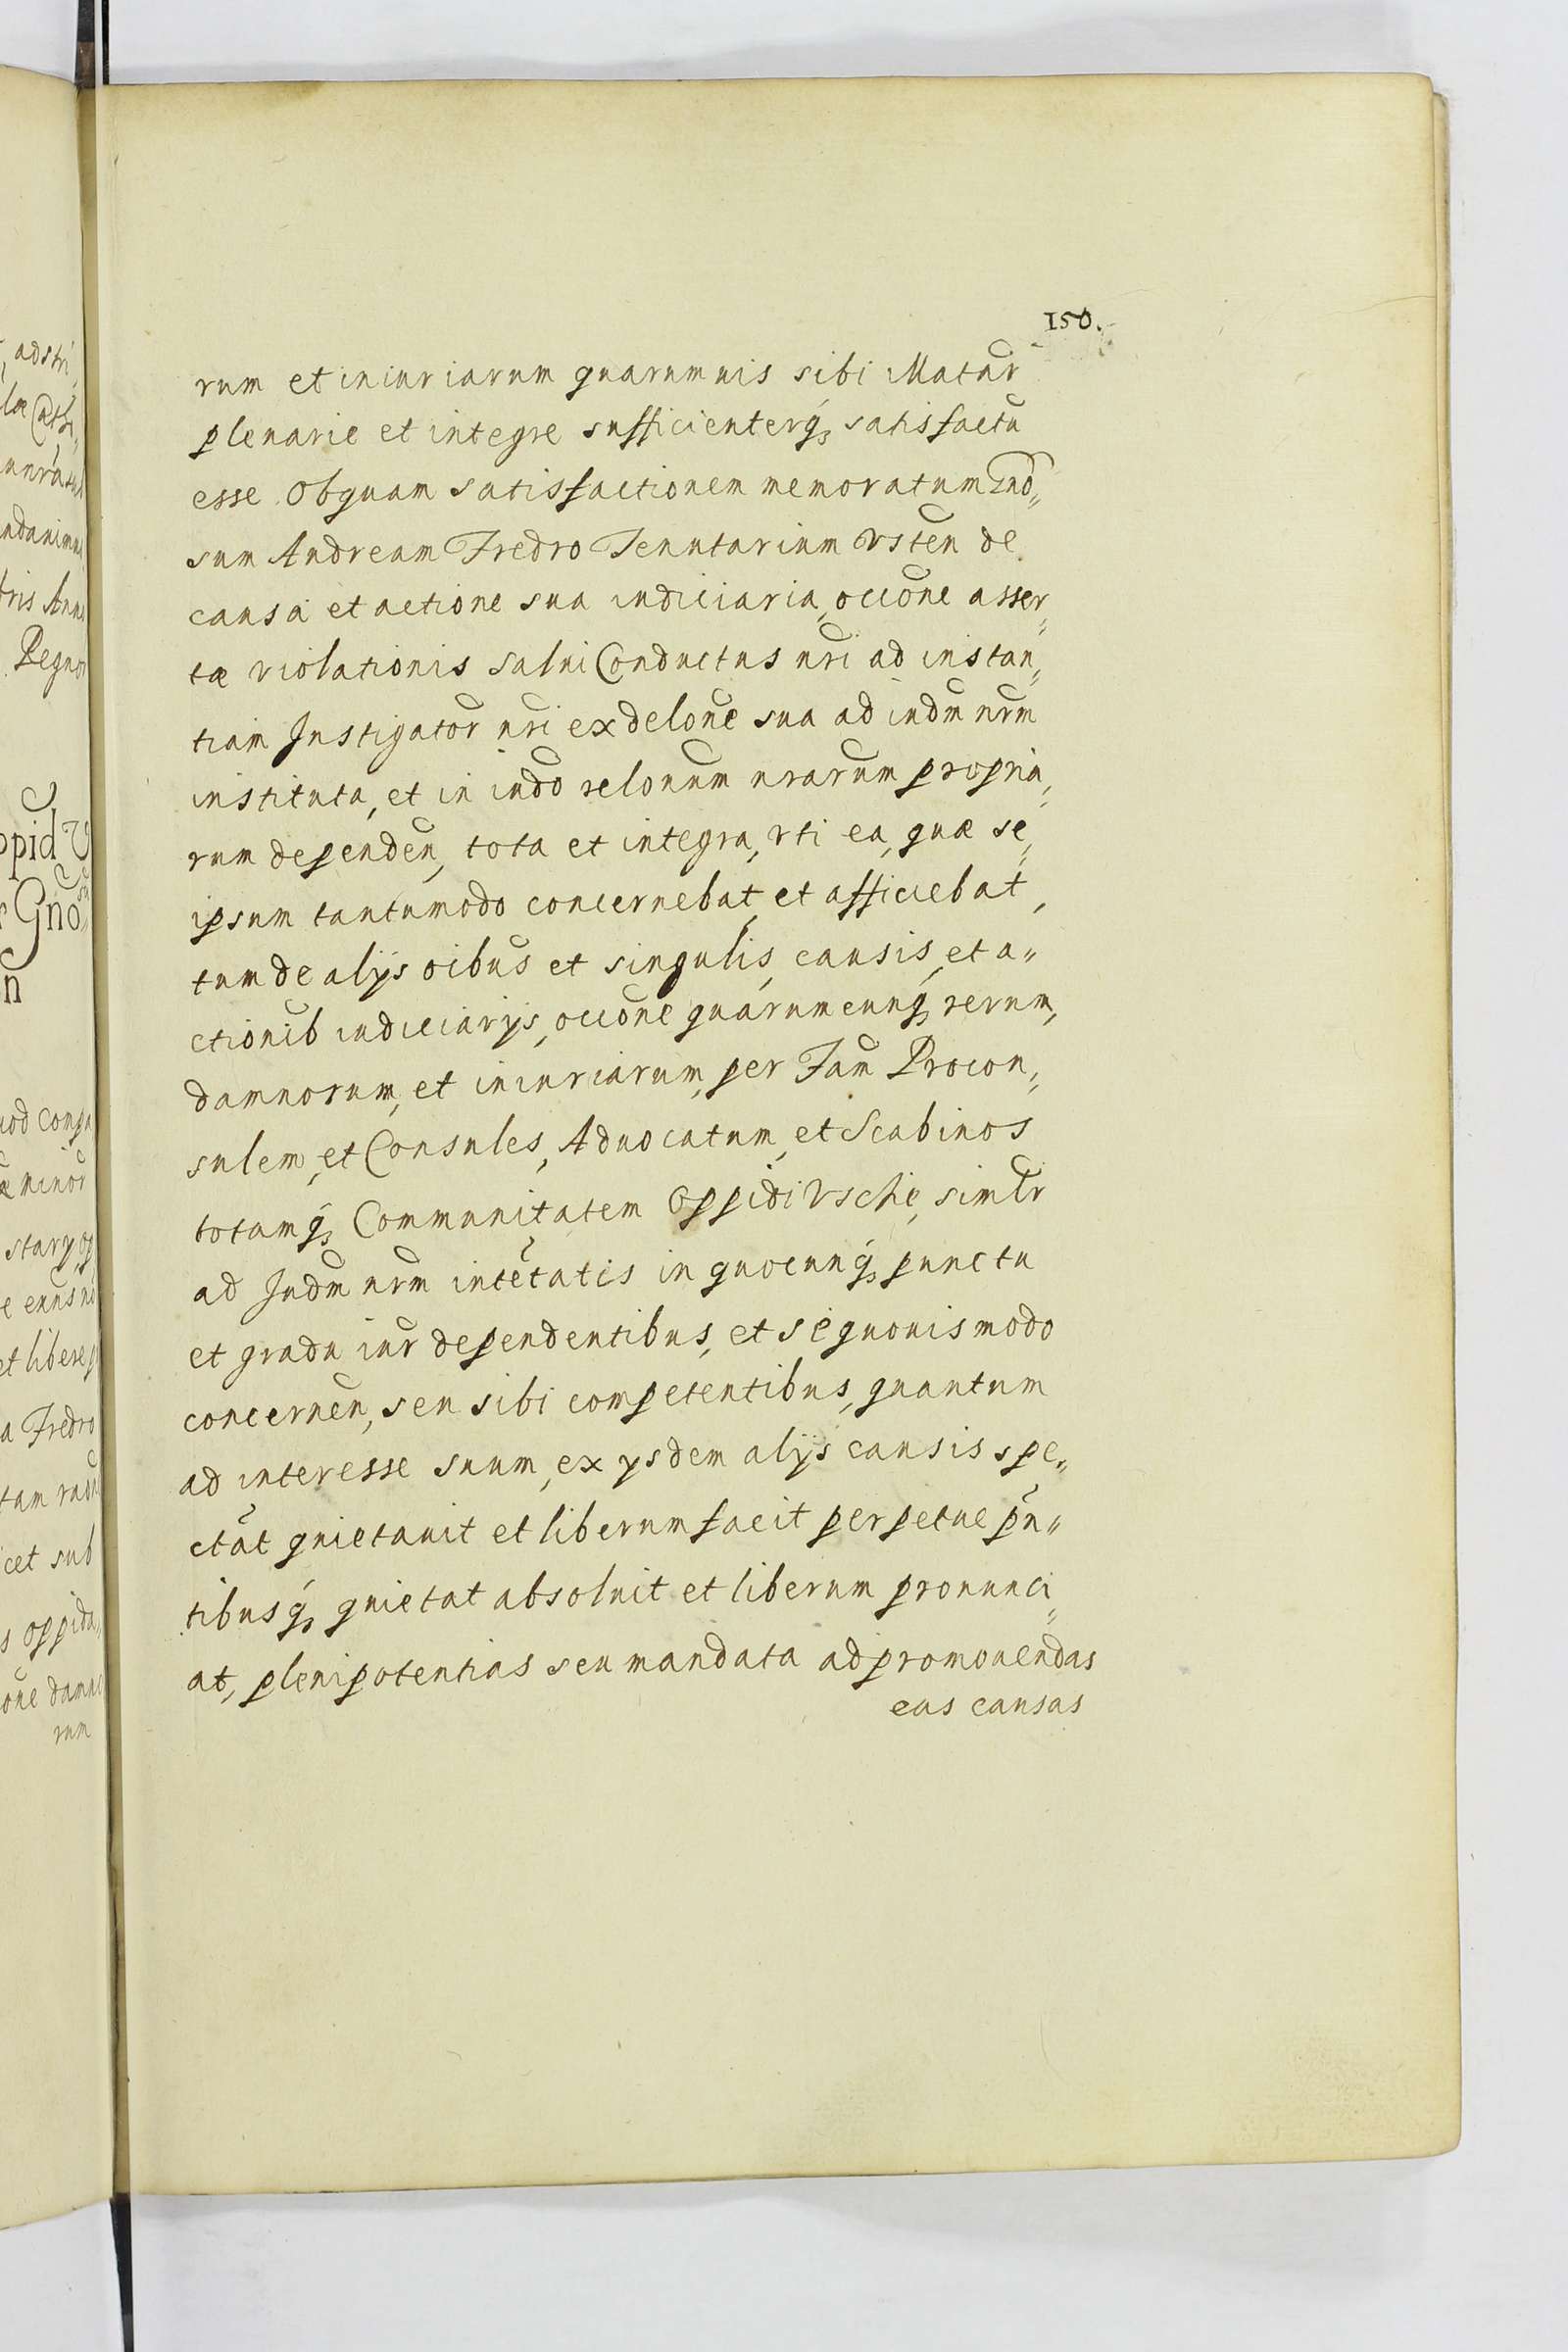 150.
rum et iniuriarum quarumuis sibi illatar̃
plenarie et integre sufficienterq́ꝫ satisfactũ
esse. Ob quam satisfactionem memoratum Gnõ„
sum Andream Fredro Tenutarium Vsten̄ de
causa et actione sua iudiciaria, occõne asser„
tæ violationis salui Conductus nr̃i ad instan„
tiam Instigator̃ nr̃i ex delone̊ sua ad iudm̃ nrm̃
instituta, et in iudõ relonum̃ nrarum̃ propria„
rum dependen̄, tota et integra, vti ea, quæ se„
ipsum tantumodo concernebat, et afficiebat,
tum de alijs oibus̃ et singulis, causis, et a„
ctionib̃ iudiciarijs, occõne quarumcunq́ꝫ rerum,
damnorum, et iniuriarum, per Fam̃ Procon„
sulem, et Consules, Aduocatum, et Scabinos
totamq́ꝫ Communitatem Oppidi Vsche, similr̃
ad Judm̃ nrm̃ intẽtatis in quocunq́ꝫ punctu
et gradu iur̃ dependentibus, et se quouis modo
concernen̄, seu sibi competentibus, quantum
ad interesse suum, ex ysdem alijs causis spe„
ctãt quietauit et liberum facit perpetue pñ„
tibusq́ꝫ quietat absoluit et liberum pronunci„
at, plenipotentias seu mandata ad promouendas
eas causas
adstri„
Regnor
opid V
Gno
n
minor̃
et libere
a Fredro
cet sub
s oppida„
one damno
rum